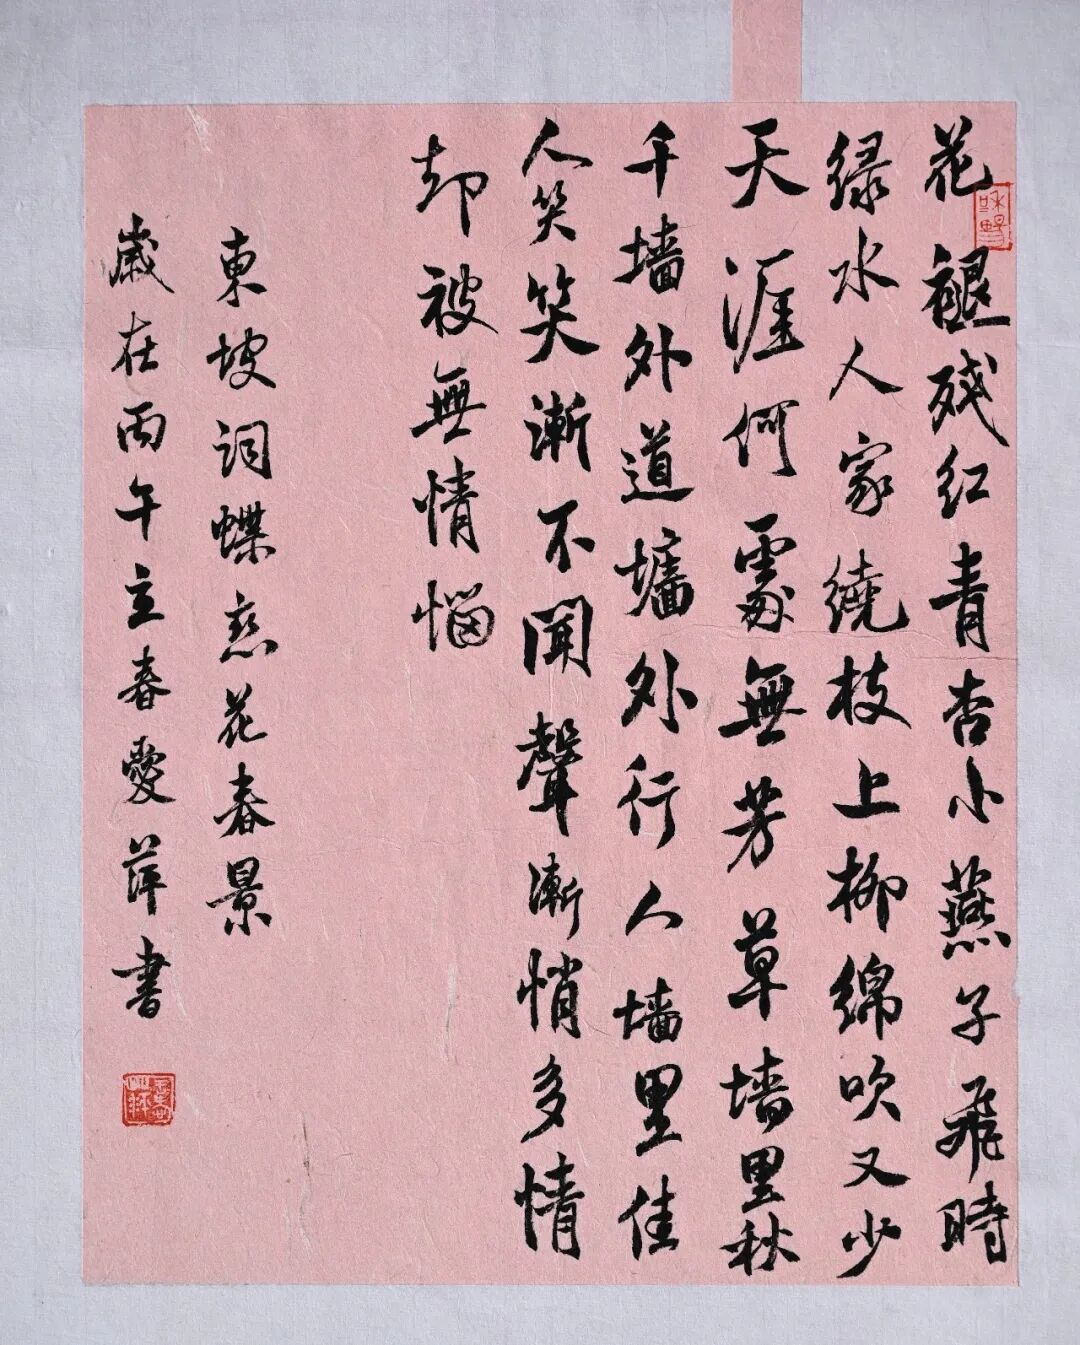 花褪残红青杏小燕子飛時
绿水人家繞枝上柳綿吹又少
天涯何處無芳草墙里秋
千墙外道墻外行人墙里佳
人笑笑漸不聞聲漸悄多情
却被無情惱
東坡词蝶恋花春景
歲在丙午立春愛萍書